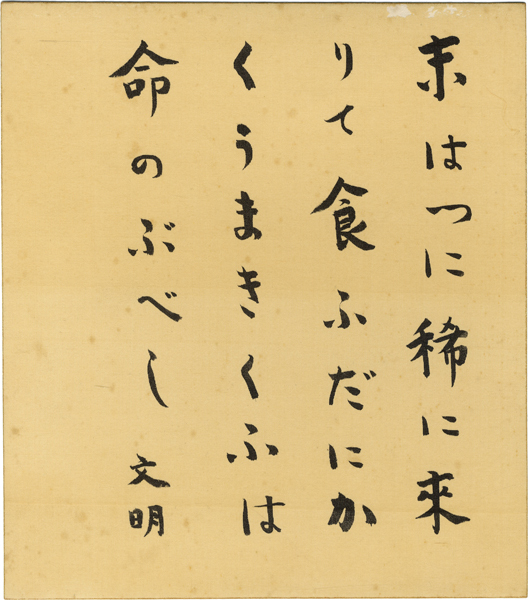 末はつに稀に來
りて食ふだにか
くうまきくふは
命のぶべし 文明